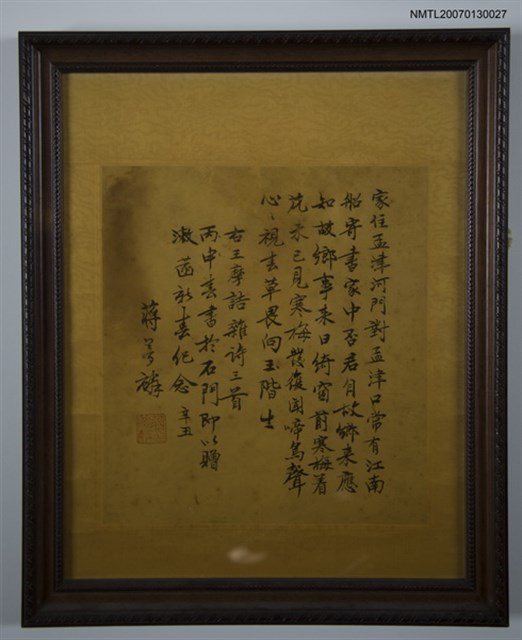 NMTL20070130027
家住孟津河門對孟津口常有江南
船寄書家中否君自故鄉來應
知故鄉事來日綺窗前寒梅着
花未已見寒梅發復聞啼鳥聲
心〻視春草畏向玉階生
右王摩詰雜詩三首
丙申春書於石門即以贈
漱菡新春纪念 辛丑
蔣夢麟